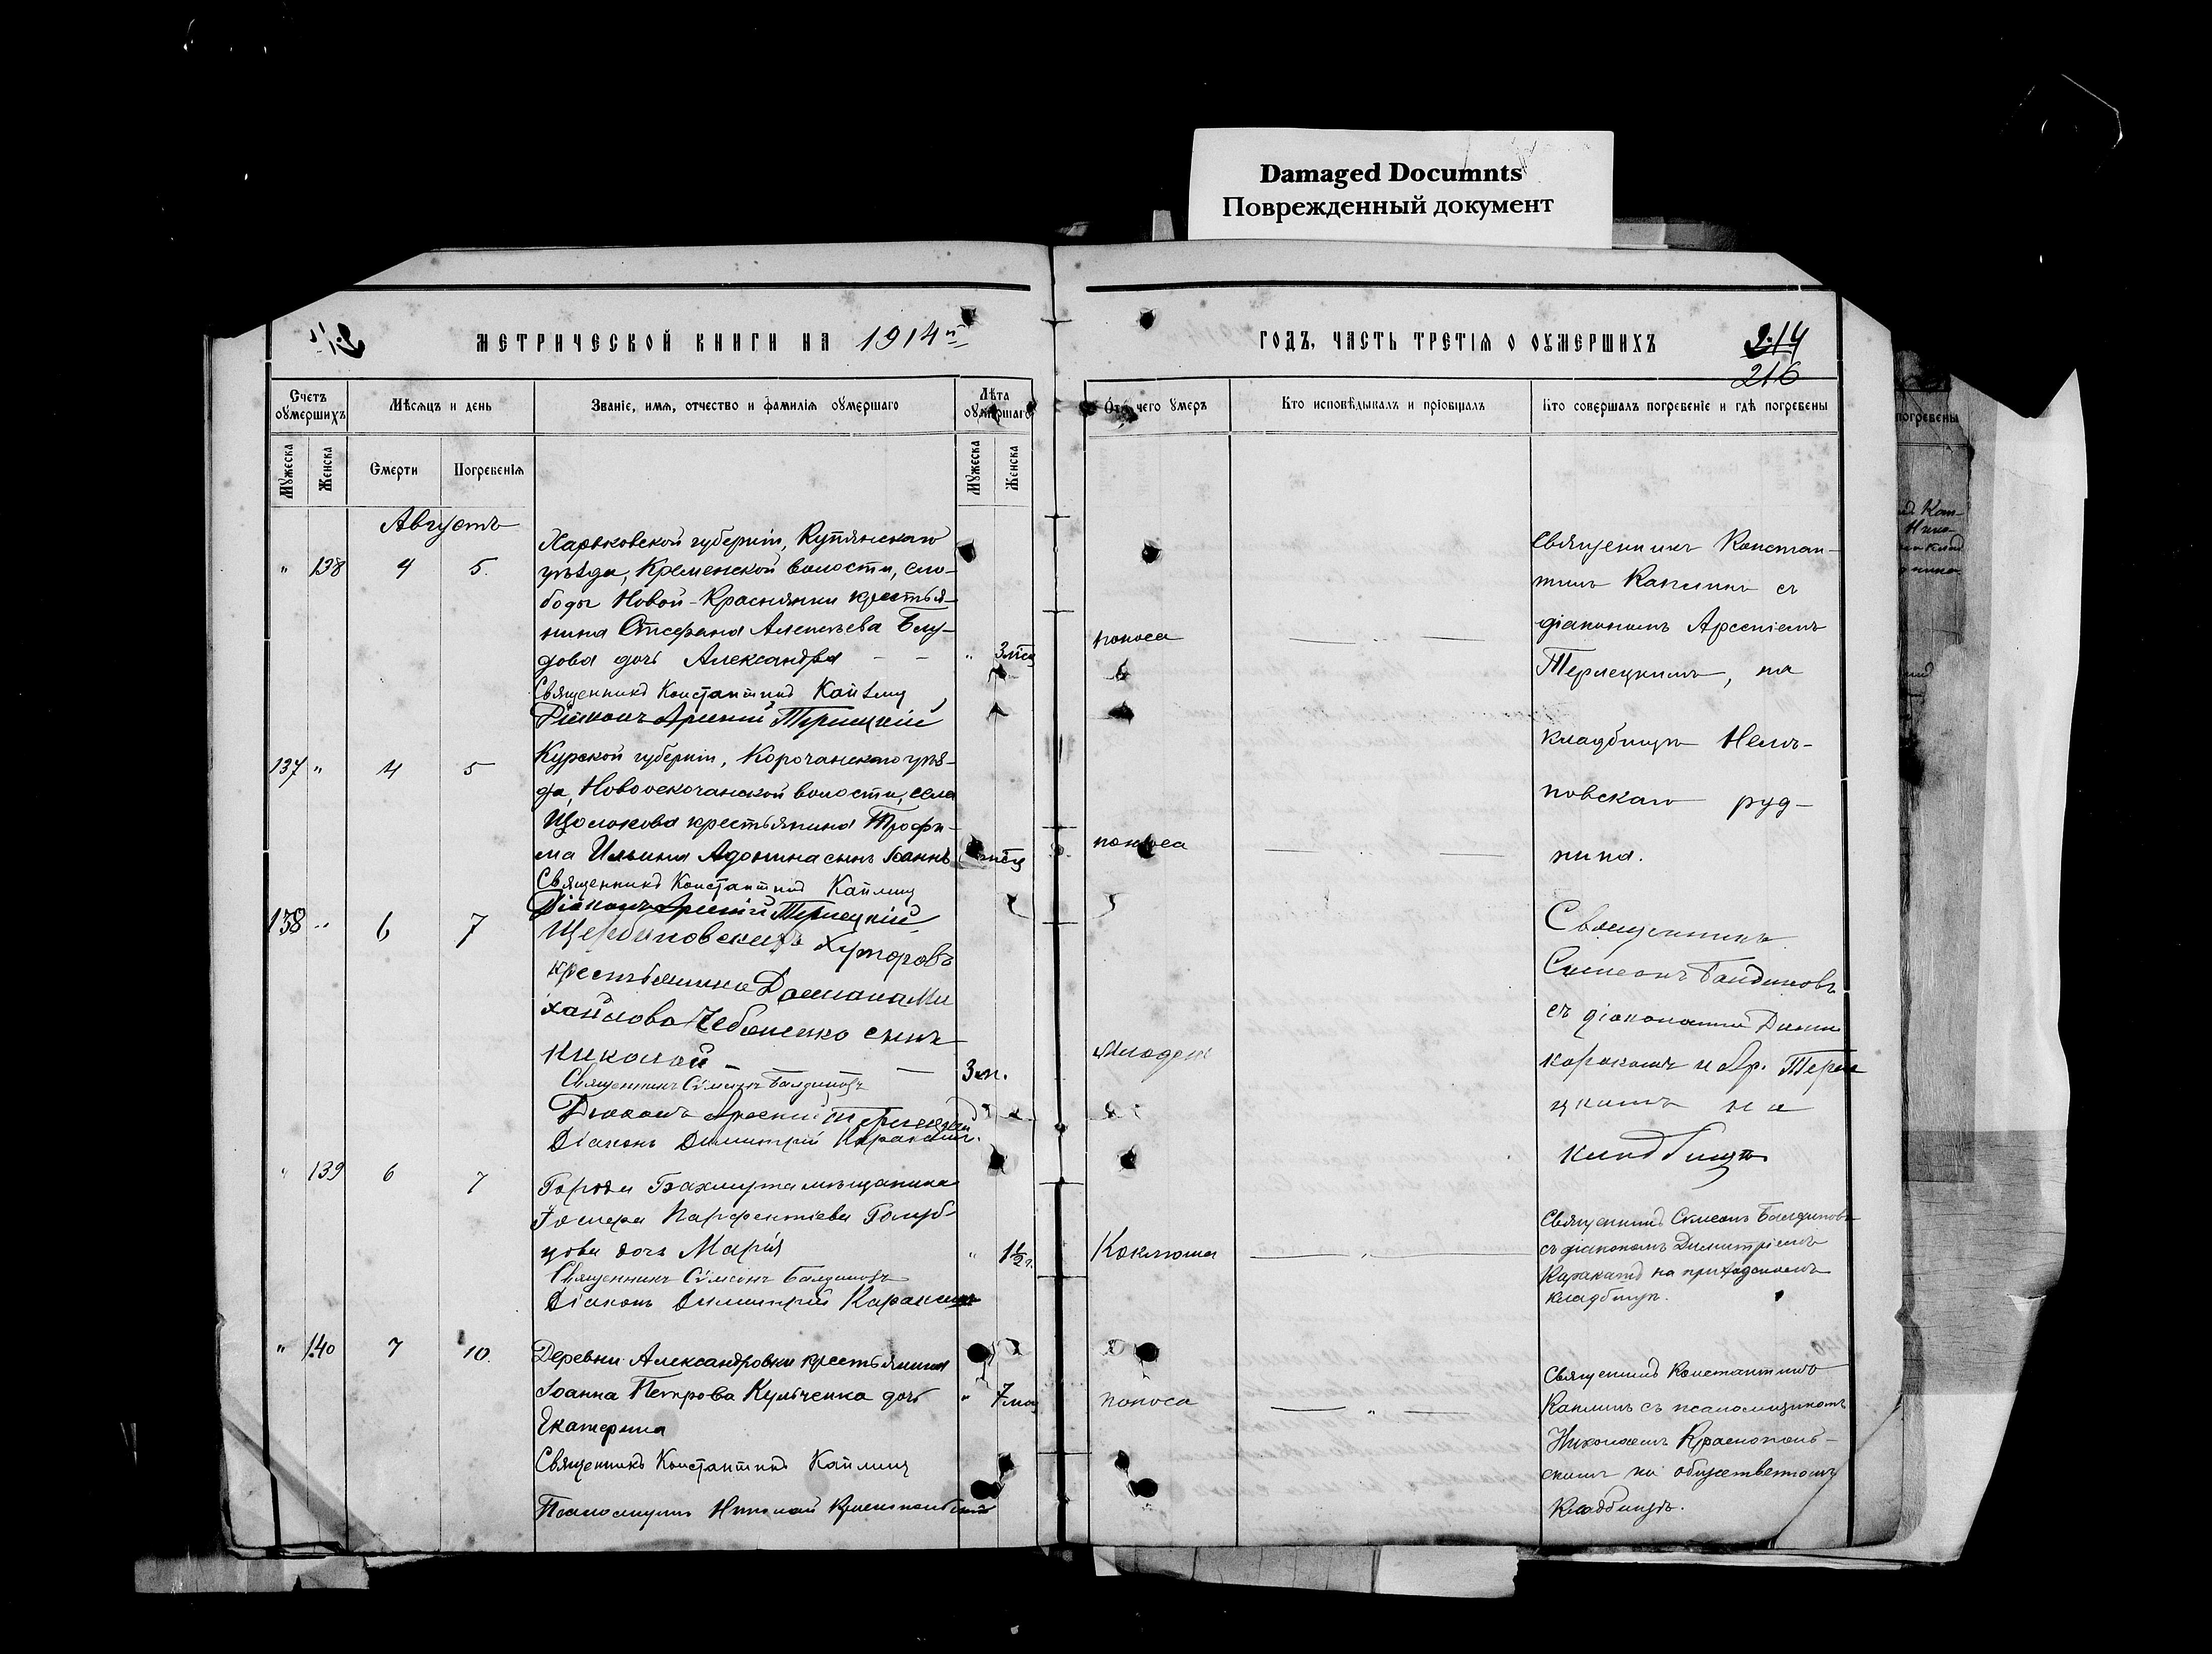 Damaged Documnts
Поврежденный документ
МЕТРИЧЕСКОЙ КНИГИ НА 1914й
ГОДЪ, ЧАСТЬ ТРЕТІЯ О ОУМЕРШИХЪ
214
216
Счетъ оумершихъ
Мѣсяцъ и день
Званіе, имя, отчество и фамилія оумершаго
Лѣта оумершаго
Мужеска
Женска
Смерти
Погребенія
Мужеска
Женска
Отъ чего умеръ
Кто исповѣдывалъ и пріобщалъ
Кто совершалъ погребеніе и гдѣ погребены
погребены
Августъ
" 138 4 5.
Харьковской губерніи, Купянскаго
уѣзда, Кременской волости, сло-
боды Новой-Краснянки крестья-
нина Стефана Алексѣева Блу-
дова дочь Александра - -
" 3 мѣс
поноса
Священникъ Константинъ Каплинъ
Діаконъ Арсеній Терлецкій
Священникъ Констан-
тинъ Каплинъ съ
діакономъ Арсеніемъ
Терлецкимъ, на
кладбищѣ Нелѣ-
повскаго руд-
ника.
137 " 4 5
Курской губерніи, Корочанскаго уѣз-
да, волости, села
Щолокова крестьянина Трофи-
ма Ильина Адонина сынъ Іоаннъ
мѣс
поноса
Священникъ Константинъ Каплинъ
Діаконъ Арсеній Терлецкій
138 " 6 7
Щербиновскихъ Хуторовъ
крестьянина Даміана Ми
хайлова сынъ
Николай -
3 м.
Священникъ Сѵмеонъ Балдиновъ
Діаконъ Арсеній Терлецкій
Діаконъ Димитрій Каракашъ.
Священникъ
Симеонъ Балдиновъ
съ діаконами Дими
Каракашъ и Ар. Терле
цкимъ на
кладбищѣ
" 139 6 7
Города Бахмута мѣщанина
Іосифа Парфентіева Голуб-
цова дочь Марія
" 1½ г.
Коклюша
Священникъ Сѵмеонъ Балдиновъ
Діаконъ Димитрій Каракашъ
Священникъ Симеонъ Балдиновъ
съ діакономъ Димитріемъ
Каракашъ на приходскомъ
кладбищѣ.
" 140 7 10.
Деревни Александровки крестьянина
Іоанна Петрова Кульченка дочь
Екатерина
" 7 мѣс
поноса
Священникъ Константинъ Каплинъ
Псаломщикъ Николай Краснопольскій
Священникъ Константинъ
Каплинъ съ псаломщикомъ
Николаемъ Краснополь-
скимъ на общественномъ
Кладбищѣ.